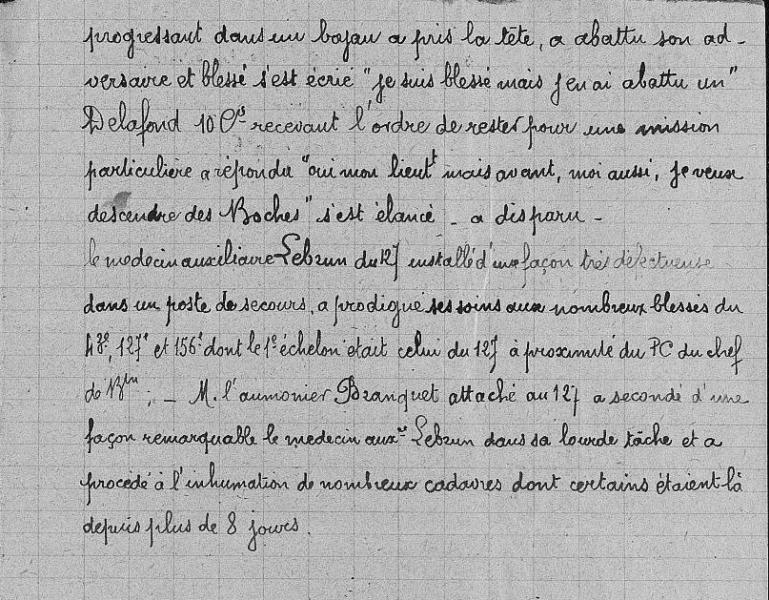 progressant dans un boyau a pris la tête, a abattu son ad-
versaire et blessé s'est écrié "je suis blessé mais j'en ai abattu un"
Delafond 10e Cie recevant l'ordre de rester pour une mission
particulière a répondu "oui mon lieut mais avant, moi aussi, je veux
descendre des Boches" s'est élancé - a disparu -
le medecin auxiliaire Lebrun du 127 installé d'une façon très défectueuse
dans un poste de secours, a prodigué ses soins aux nombreux blessés du
43e, 127e et 156e dont le 1e échelon était celui du 127 à proximité du PC du chef
de Btn; - M. l'aumonier Branquet attaché au 127 a secondé d'une
façon remarquable le medecin auxre Lebrun dans sa lourde tâche et a
procédé à l'inhumation de nombreux cadavres dont certains étaient là
depuis plus de 8 jours.